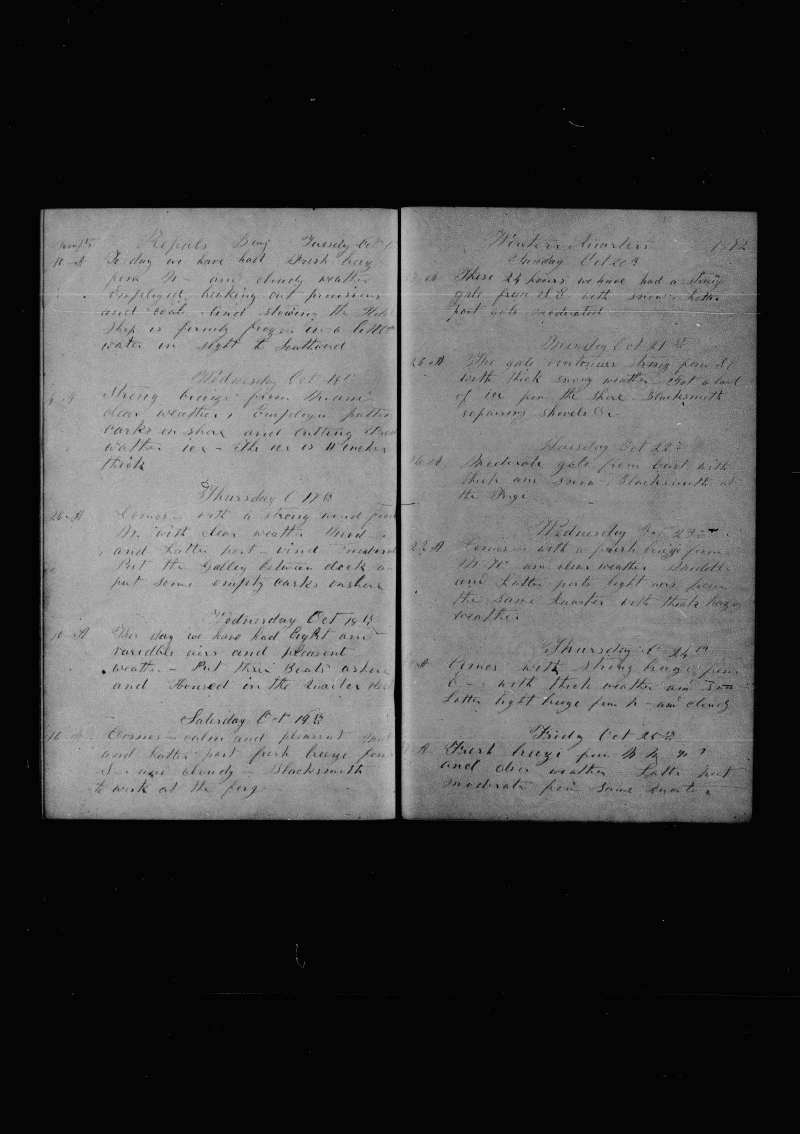 Repuls Bay Tuesday Oct 15
10 A To day we have had Fresh breeze
from and cloudy weather
Employed breaking out provisions
and coal. And stowing the Hole
Ship is firmly frozen in a little
water in sight to Southward
Wednesday Oct 16th
Strong breeze from and
clear weather. Employed putting
casks on shore and Cutting fresh
watter ice - The ice is 11 inches
thick
Thursday 17th
Comes - with a strong wind from
with clear weather
and Latter part - wind
Put the Galley between deck
put some empty casks onshore
Wednesday Oct 18th
10 A This day we have had light and
varidble airs and pleasent
weath. - Put three Boats ashore
and Housed in the Quarter deck
Saterday Oct 19th
16 A Comes - calm and pleasent
and Latter part fresh breeze from
S - and cloudy - Blacksmith
to work at the forg
Winter Quarters 1872
Sunday Oct 20
A These 24 hours we have had a strong
gale from with snow. Latter
part gale moderated
Oct 21st
26 A The gale continues strong from SE
with thick snowy weather. Got a load
of ice from the shore Blacksmith
repairing shovels &c
Tuesday Oct 22
A Moderate gale from East with
thick and snow. Blacksmith at
the Forge
Wednesday Oct 23
22 A Comes - with a fresh breeze from
and clear weather Middle
and Latter parts light airs from
the same Quarter with thick hazy
weather
Thursday 24th
A Comes with strong breeze from
E - with thick weather and snow
Latter light breeze from N - and cloudy
Fridy Oct 25th
A Fresh breeze from
and clear weather - Latter part
moderate from same Quarter